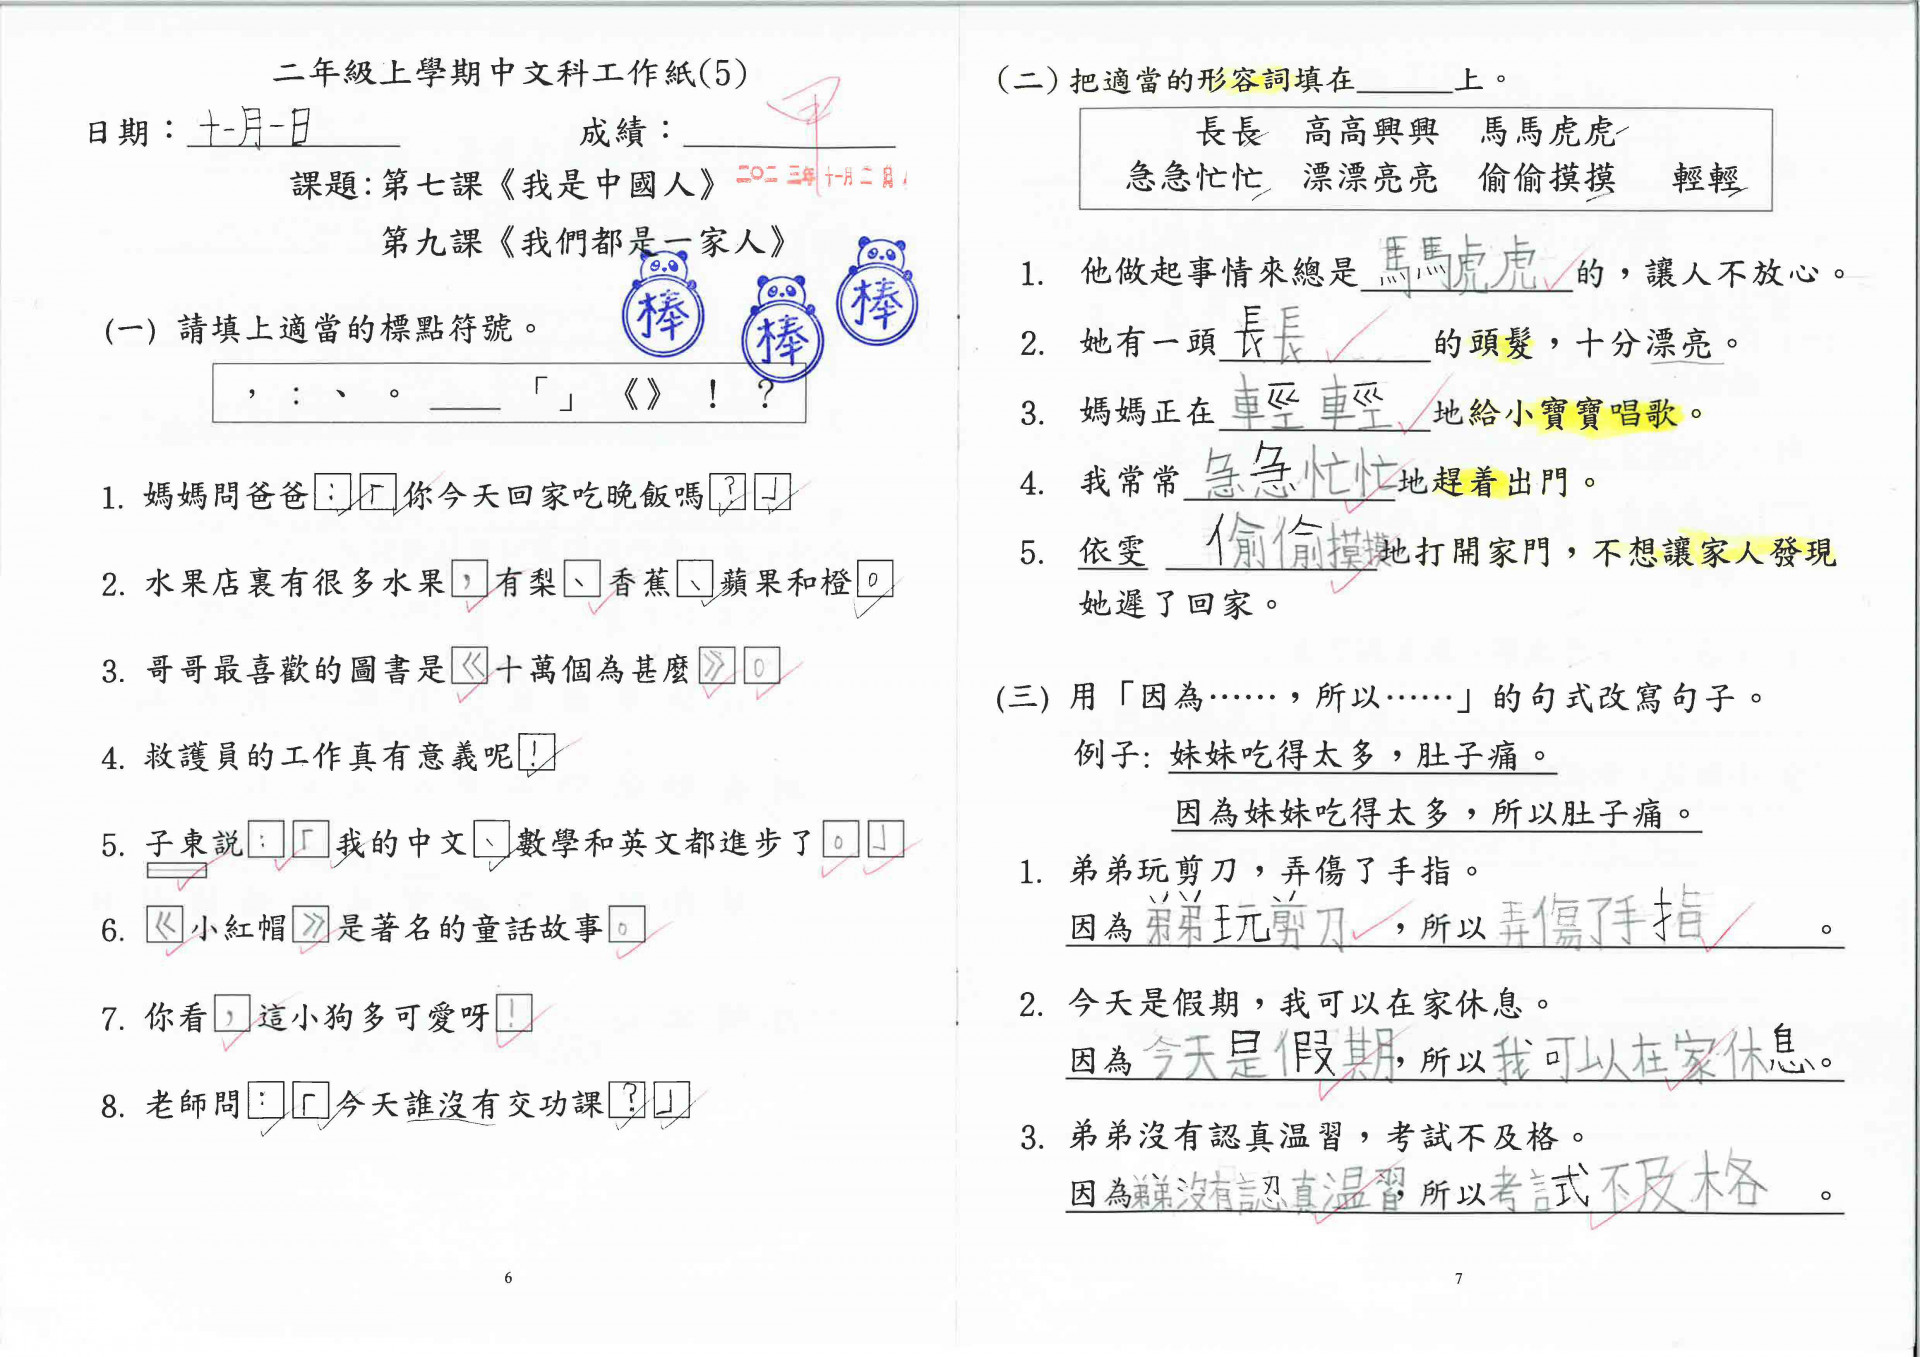 二年級上學期中文科工作紙(5)
日期：十一月一日 成績：甲
二〇二三年十一月二
課題：第七課《我是中國人》
第九課《我們都是一家人》
棒 棒 棒
(一) 請填上適當的標點符號。
， ： 、 。 ＿＿ 「」 《》 ！ ？
1. 媽媽問爸爸：「你今天回家吃晚飯嗎？」
2. 水果店裏有很多水果，有梨、香蕉、蘋果和橙。
3. 哥哥最喜歡的圖書是《十萬個為甚麼》。
4. 救護員的工作真有意義呢！
5. 子東説：「我的中文、數學和英文都進步了。」
6. 《小紅帽》是著名的童話故事。
7. 你看，這小狗多可愛呀！
8. 老師問：「今天誰沒有交功課？」
6
(二) 把適當的形容詞填在＿＿＿上。
長長 高高興興 馬馬虎虎
急急忙忙 漂漂亮亮 偷偷摸摸 輕輕
1. 他做起事情來總是馬馬虎虎的，讓人不放心。
2. 她有一頭長長的頭髮，十分漂亮。
3. 媽媽正在輕輕地給小寶寶唱歌。
4. 我常常急急忙忙地趕着出門。
5. 依雯偷偷摸摸地打開家門，不想讓家人發現
她遲了回家。
(三) 用「因為……，所以……」的句式改寫句子。
例子: 妹妹吃得太多，肚子痛。
因為妹妹吃得太多，所以肚子痛。
1. 弟弟玩剪刀，弄傷了手指。
因為弟弟玩剪刀，所以弄傷了手指。
2. 今天是假期，我可以在家休息。
因為今天是假期，所以我可以在家休息。
3. 弟弟沒有認真温習，考試不及格。
因為弟弟沒有認真温習，所以考試不及格。
7